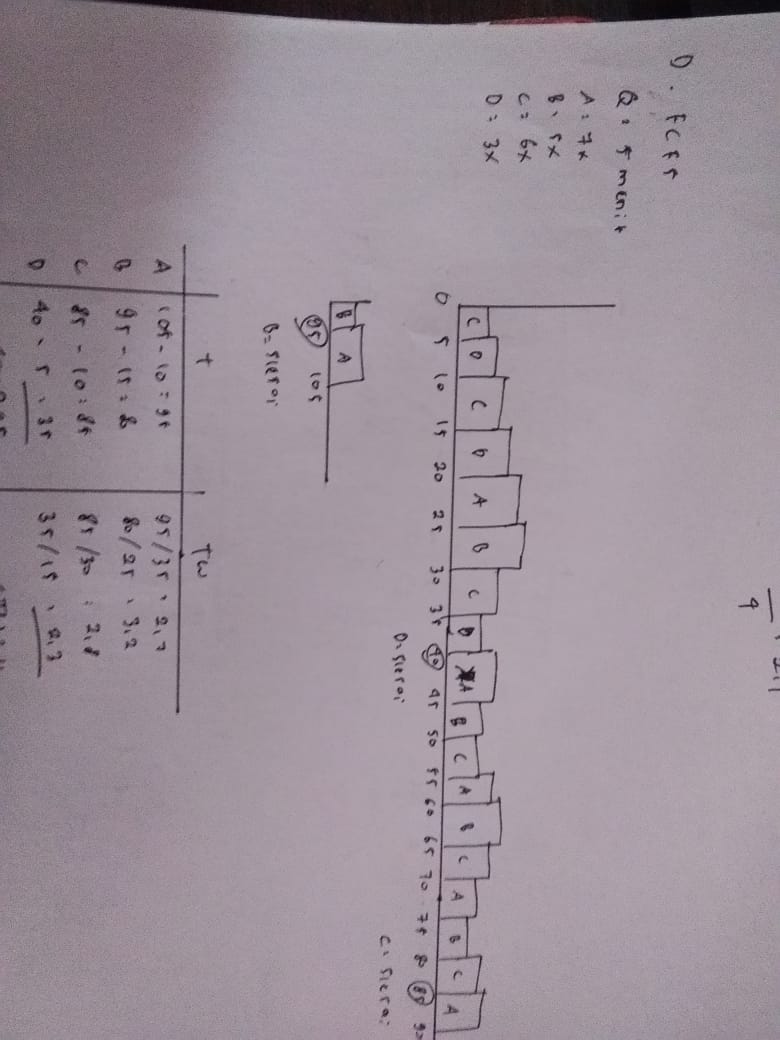 4
D. FCFS
Q = 5 menit
A = 7x
B = 5x
C = 6x
D = 3x
C D C D A B C D A B C A B C A B C A
0 5 10 15 20 25 30 35 40 45 50 55 60 65 70 75 80 85 90
D = selesai C = selesai
B A
95 105
B = selesai
T TW
A 105 - 10 = 95 95/35 = 2,7
B 95 - 15 = 80 80/25 = 3,2
C 85 - 10 = 85 85/30 = 2,8
D 40 - 5 = 35 35/15 = 2,3